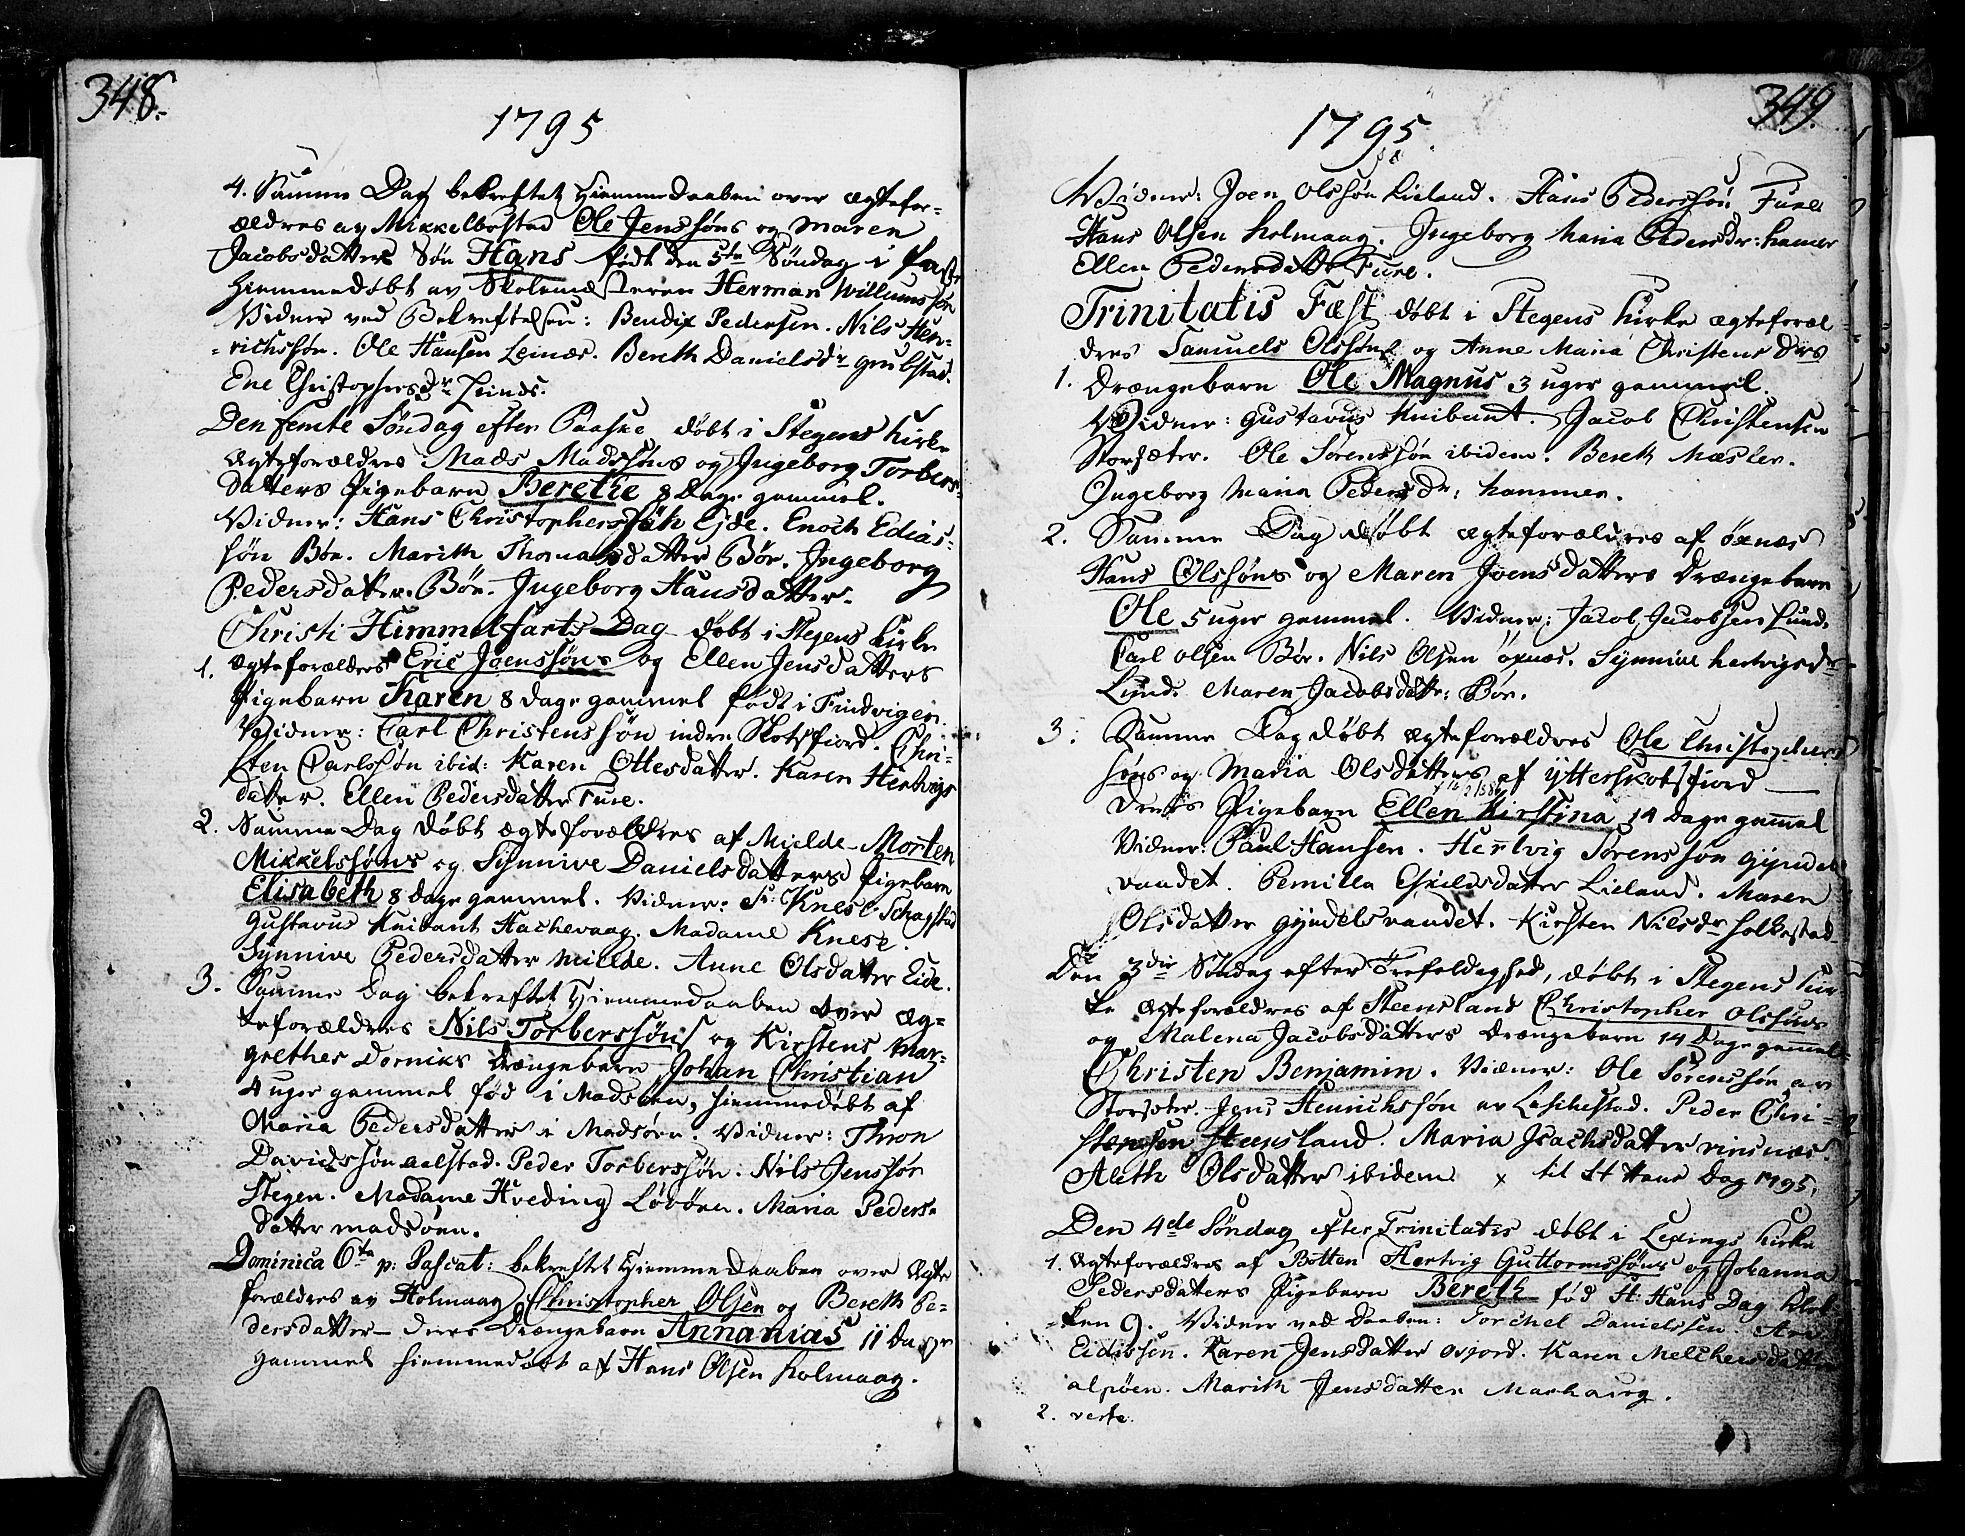 348.
1795
4. Samme Dag bekreftet Hiemmedaaben over ægtefor-
ældres af Mikkelbostad Ole Jenssøns og Maren
Jacobsdatters Søn Hans født den 5te Søndag i Faste
hiemmedøbt av Skolemesteren Herman Willumssøn
Vidner ved Bekreftelsen: Bendix Pedersen. Nils Hen-
richssøn. Ole Hansen Leinæs. Bereth Danielsdr grubstad.
Ene Christophersdr Leinæs.
Den femte Søndag efter Paaske døbt i Stegens Kirke
Ægteforældres Mads Madssøns og Ingeborg Torbers-
datters Pigebarn Berethe 8 Dage gammel.
Vidner: Hans Christopherssøn Ejde. Enoch Edias-
søn Bøe. Marith Thomasdatter Bør. Ingeborg
Pedersdatter Bør. Ingeborg Hansdatter.
Christi Himmelfarts Dag døbt i Stegens Kirke
1. Ægteforældres Eric Joenssøns og Ellen Jensdatters
Pigebarn Karen 8 dage gammel født i Findvigen.
Vidner: Carl Christenssøn indre Skotsfiord. Chri-
sten Carlssøn ibid: Karen Ottesdatter. Karen Hertvigs
datter. Ellen Pedersdatter Fure.
2. Samme Dag døbt ægteforældres af Mielde Morten
Mikkelssøns og Synnive Danielsdatters Pigebarn
Elisabeth 8 dage gammel. Vidner: Sr: Knese Schagstad
Gustavus Knibant Hachevaag. Madame Knese.
Synnive Pedersdatter Mielde. Anne Olsdatter Eide.
3. Samme Dag bekreftet Hiemmedaaben over æg-
teforældres Nils Torberssøns og Kirstens Mar-
grethes Dorniks Drængebarn Johan Christian
4 uger gammel fød i Madsøen, hiemmedøbt af
Maria Pedersdatter i Madsøen. Vidner: Thron
Davidssøn aalstad. Peder Torberssøn. Nils Jenssøn
Stegen. Madame Hveding Løvøen. Maria Peders-
datter madsøen.
Dominica 6ta p: Pascat: bekreftet Hiemmedaaben over Ægte
forældres av Holmaag Christopher Olsen og Bereth Pe-
dersdatter deres Drængebarn Annanias 11 Dage
gammel hiemmedøbt af Hans Olsen holmaag.
349.
1795.
Vidner: Joen Olssøn Lieland. Hans Pederssøn Fure
Hans Olsen holmaag. Ingeborg Maria Pedersdr: hamer
Ellen Pedersdatter Fure.
Trinitatis Fæst døbt i Stegens Kirke ægteforæl-
dres Samuels Olssøns og Anne Maria Christens drs
1. Drængebarn Ole Magnus 3 uger gammel.
Vidner: Gustavus Knibant. Jacob Christensen
Storsæter. Ole Sørenssøn ibidem. Bereth Mæsler.
Ingeborg Maria Pedersdr: hammer.
2. Samme Dag døbt ægteforældres af Øxnæs
Hans Olssøns og Maren Joensdatters Drængebarn
Ole 5 uger gammel. Vidner: Jacob Jacobsen Lund.
Carl Olsen Bør. Nils Olsen Øxnæs. Synnive hertvigsdr
Lund. Maren Jacobsdatr: Bør.
3. Samme Dag døbt ægteforældres Ole Christophers
søns og Maria Olsdatters af Ytterskotsfiord
deres Pigebarn Ellen Kirstina 14 dage gammel
Vidner: Paul Hansen. Hertvig Sørenssøn gyndels
vandet. Pernilla Eskildsdatter Lieland. Maren
Olsdatter gyndelsvandet. Kirsten Nilsdr holkestad
Den 3die Søndag efter Trefoldighed, døbt i Stegens Kir-
ke ægteforældres af Steensland Christopher Olssøns
og Malena Jacobsdatters Drængebarn 14 Dage gammel
Christen Benjamin. Vidner: Ole Sørenssøn av
Storsæter. Jens Henrichssøn av Leschestad. Peder Chri-
stensen Steensland. Maria Isachsdatter
Aleth Olsdatter ibidem x til St Hans Dag 1795.
Den 4de Søndag efter Trinitatis døbt i Lexings Kirke
1. Ægteforældres af Botten Hertvig Guttormssøns og Johanna
Pedersdatters Pigebarn Bereth fød St Hans Dag Klok-
ken 9. Vidner ved Daaben: Torchel Danielssen.
Eidissen. Karen Jensdatter. Karen Melchersdatter
alpøen. Marith Jensdatter.
2. verte.